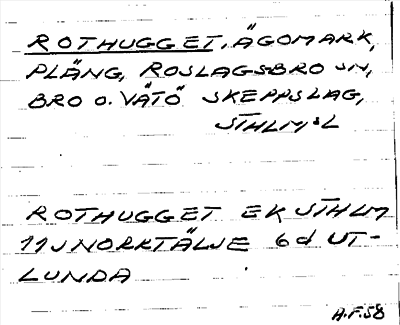 ROTHUGGET, ÄGOMARK,
PLÄNG, ROSLAGSBRO SN,
BRO O. VÄTÖ SKEPPSLAG,
STHLMSL
ROTHUGGET EK STHLM
11J NORRTÄLJE 6d UT-
LUNDA
A.F.58